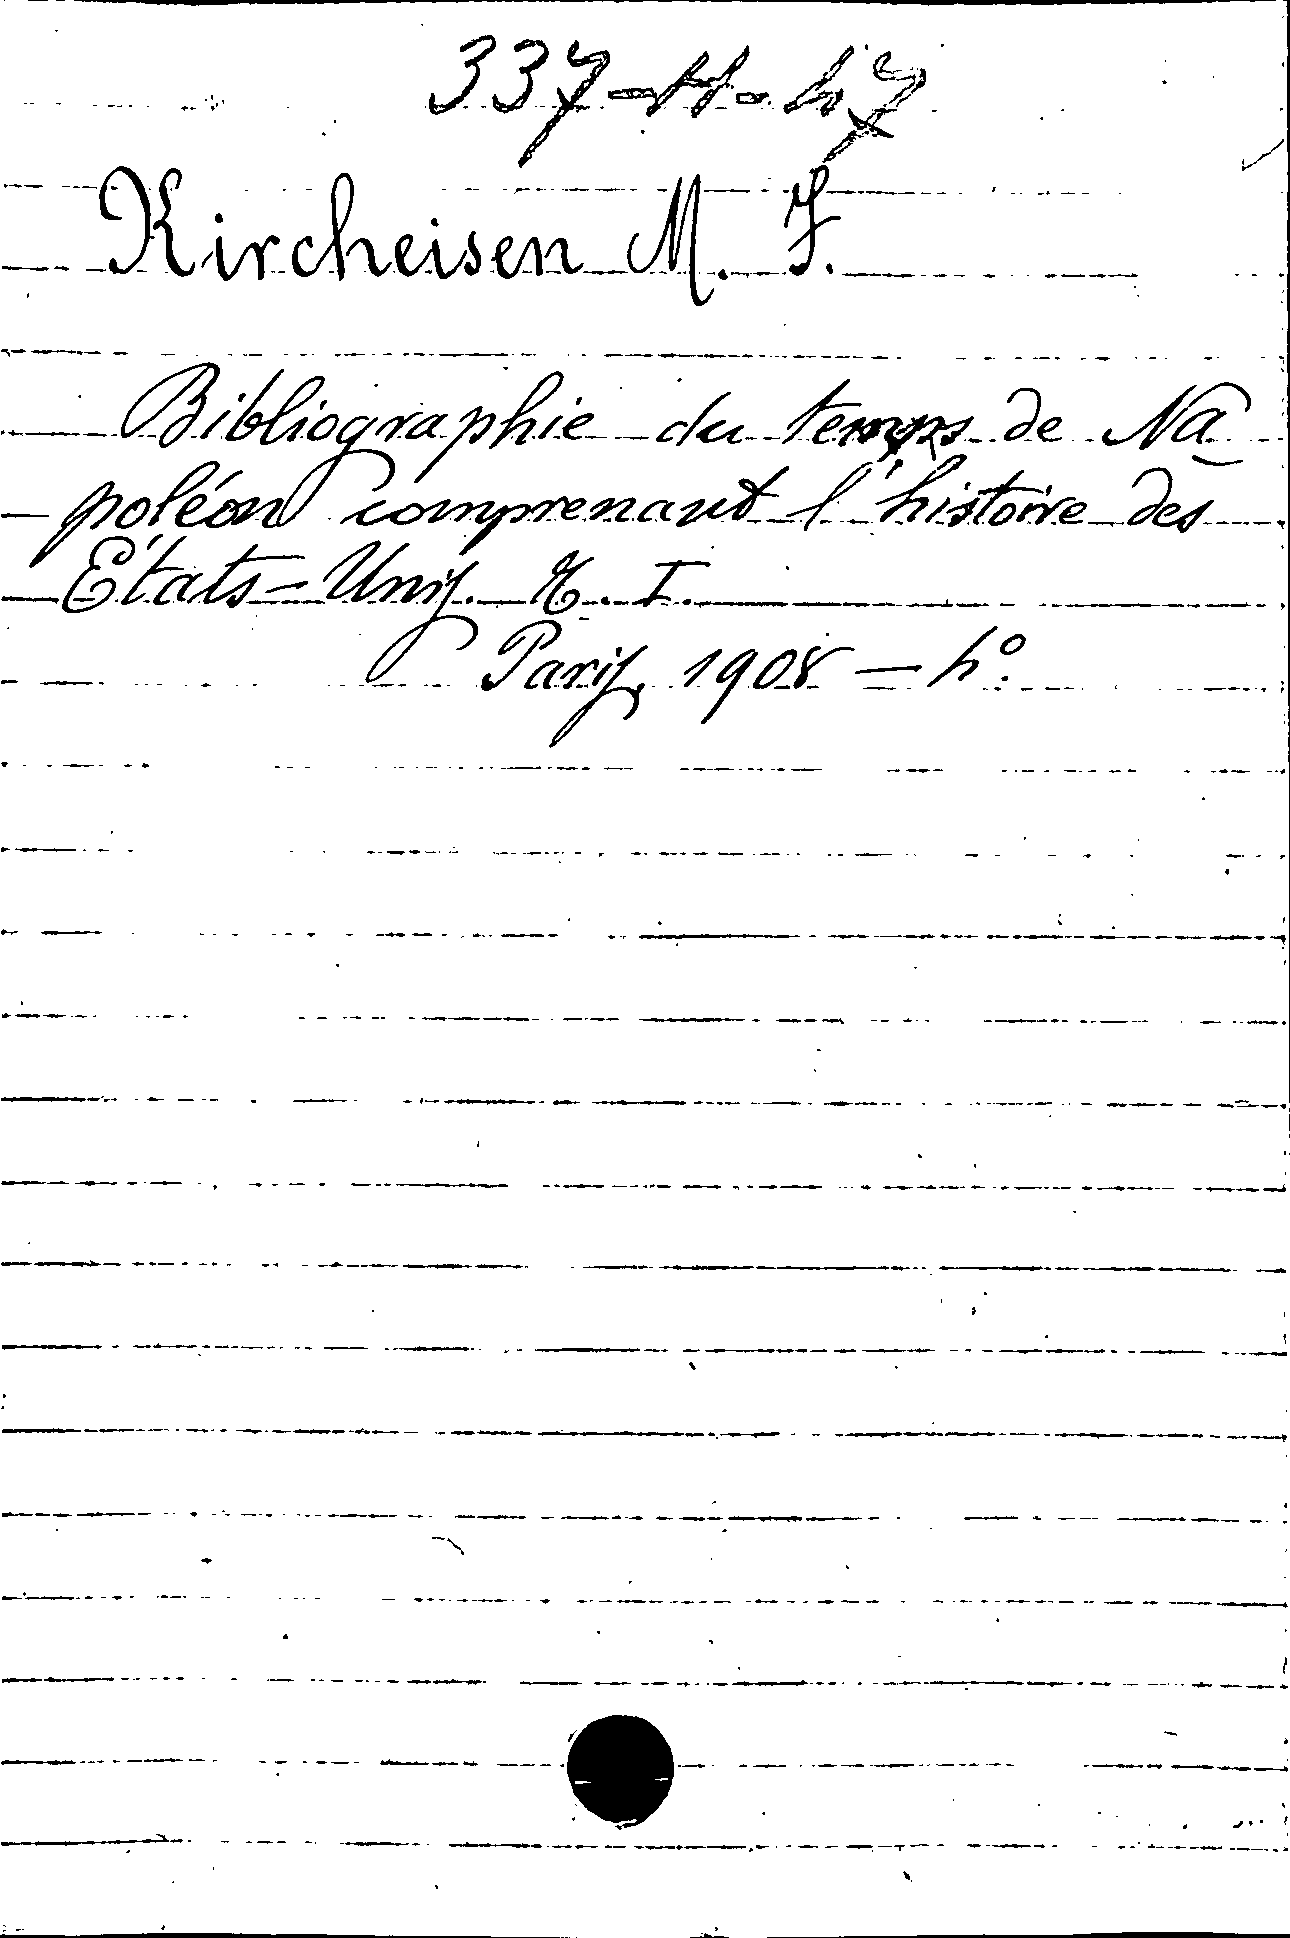 337-H-47
Kircheisen M. F.
Bibliographie du temps de Na
poléon comprenant l'histoire des
États-Unis. T. I.
Paris, 1908 - 4º.